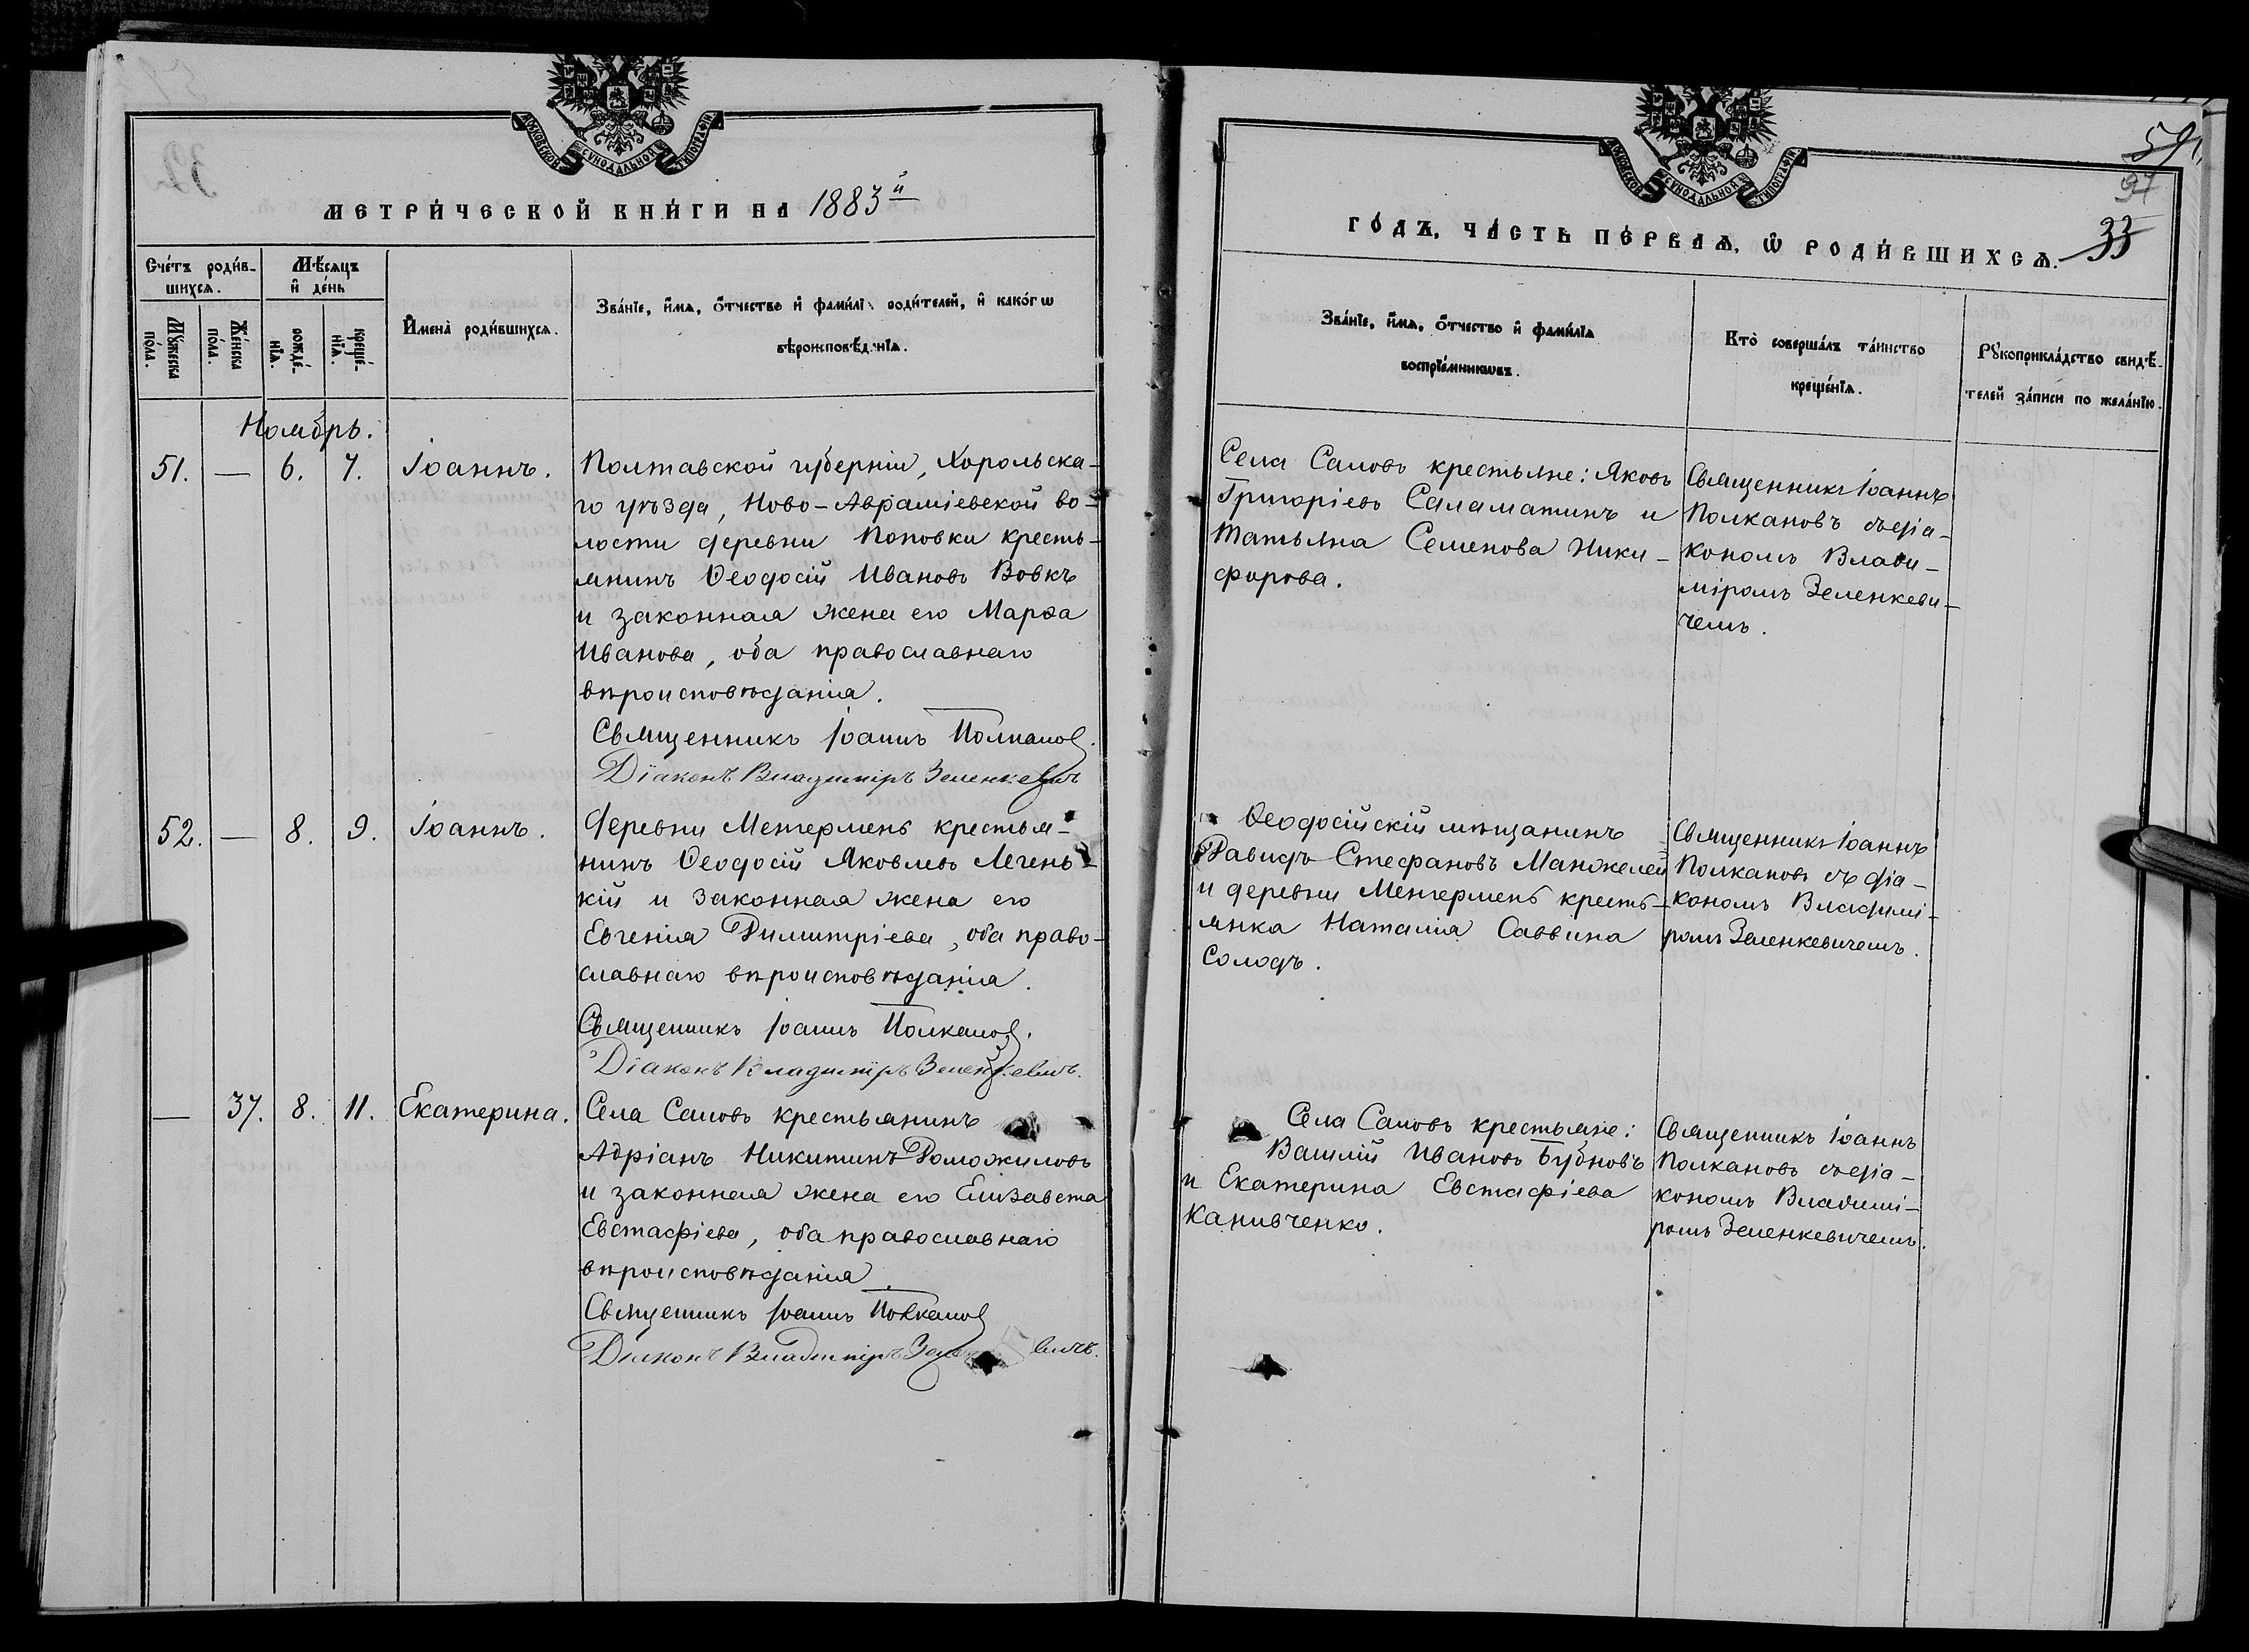 МОСКОВСКОЙ СѴНОДАЛЬНОЙ ТИПОГРАФІИ
МЕТРИ́ЧЕСКОЙ КНИ́ГИ НА 1883й
Сче́тъ роди́в-
шихся.
Мѣ́сяцъ
и҆ де́нь
Мꙋ́жеска
по́ла.
Же́нска
по́ла.
рожде́-
нїя.
креще́-
нїя.
И҆мена̀ роди́вшихся.
Зва́нїе, и҆́мя, ѻ҆́тчество и҆ фами́лї роди́телей, и҆ како́гѡ
вѣроисповѣ́д нїя.
Ноябрь.
51. — 6. 7. Іоаннъ.
Полтавской губерніи, Хорольска-
го уѣзда, Ново-Авраміевской во-
лости деревни Поповки кресть-
янинъ Ѳеодосій Ивановъ Вовкъ
и законная жена его Марѳа
Иванова, оба православнаго
вѣроисповѣданія.
Священникъ Іоаннъ Полкановъ.
Діаконъ Владиміръ Зеленкевичъ
52. — 8. 9. Іоаннъ.
Деревни Менгерменъ крестья-
нинъ Ѳеодосій Яковлевъ Легень-
кій и законная жена его
Евгенія Димитріева, оба право-
славнаго вѣроисповѣданія.
Священникъ Іоаннъ Полкановъ.
Діаконъ Владиміръ Зеленкевичъ.
— 37. 8. 11. Екатерина.
Села Саловъ крестьянинъ
Адріанъ Никитинъ Доможиловъ
и законная жена его Елизавета
Евстафіева, оба православнаго
вѣроисповѣданія.
Священникъ Іоаннъ Полкановъ
Діаконъ Владиміръ Зеле вичъ.
МОСКОВСКОЙ СѴНОДАЛЬНОЙ ТИПОГРАФІИ
59
97
33
ГО́ДЪ, ЧА́СТЬ ПЕ́РВАЯ, Ѡ҆ РОДИ́ВШИХСЯ.
Зва́нїе, и҆́мя, ѻ҆́тчество и҆ фами́лїя
воспрїе́мникѡвъ.
Кто̀ соверша́лъ та́инство
креще́нїя.
Рꙋкоприкла́дство свидѣ́-
телей за́писи по жела́нїю.
Села Саловъ крестьяне: Яковъ
Григоріевъ Саламатинъ и
Татьяна Семенова Ники-
форова.
Священникъ Іоаннъ
Полкановъ съ діа-
кономъ Влади-
міромъ Зеленкеви-
чемъ.
Ѳеодосійскій мѣщанинъ
Давидъ Стефановъ Манжелей
и деревни Менгерменъ кресть-
янка Наталія Саввина
Солодъ.
Священникъ Іоаннъ
Полкановъ съ діа-
кономъ Владимі-
ромъ Зеленкевичемъ.
Села Саловъ крестьяне:
Василій Ивановъ Бубновъ
и Екатерина Евстафіева
Канивченко.
Священникъ Іоаннъ
Полкановъ съ діа-
кономъ Владимі-
ромъ Зеленкевичемъ.